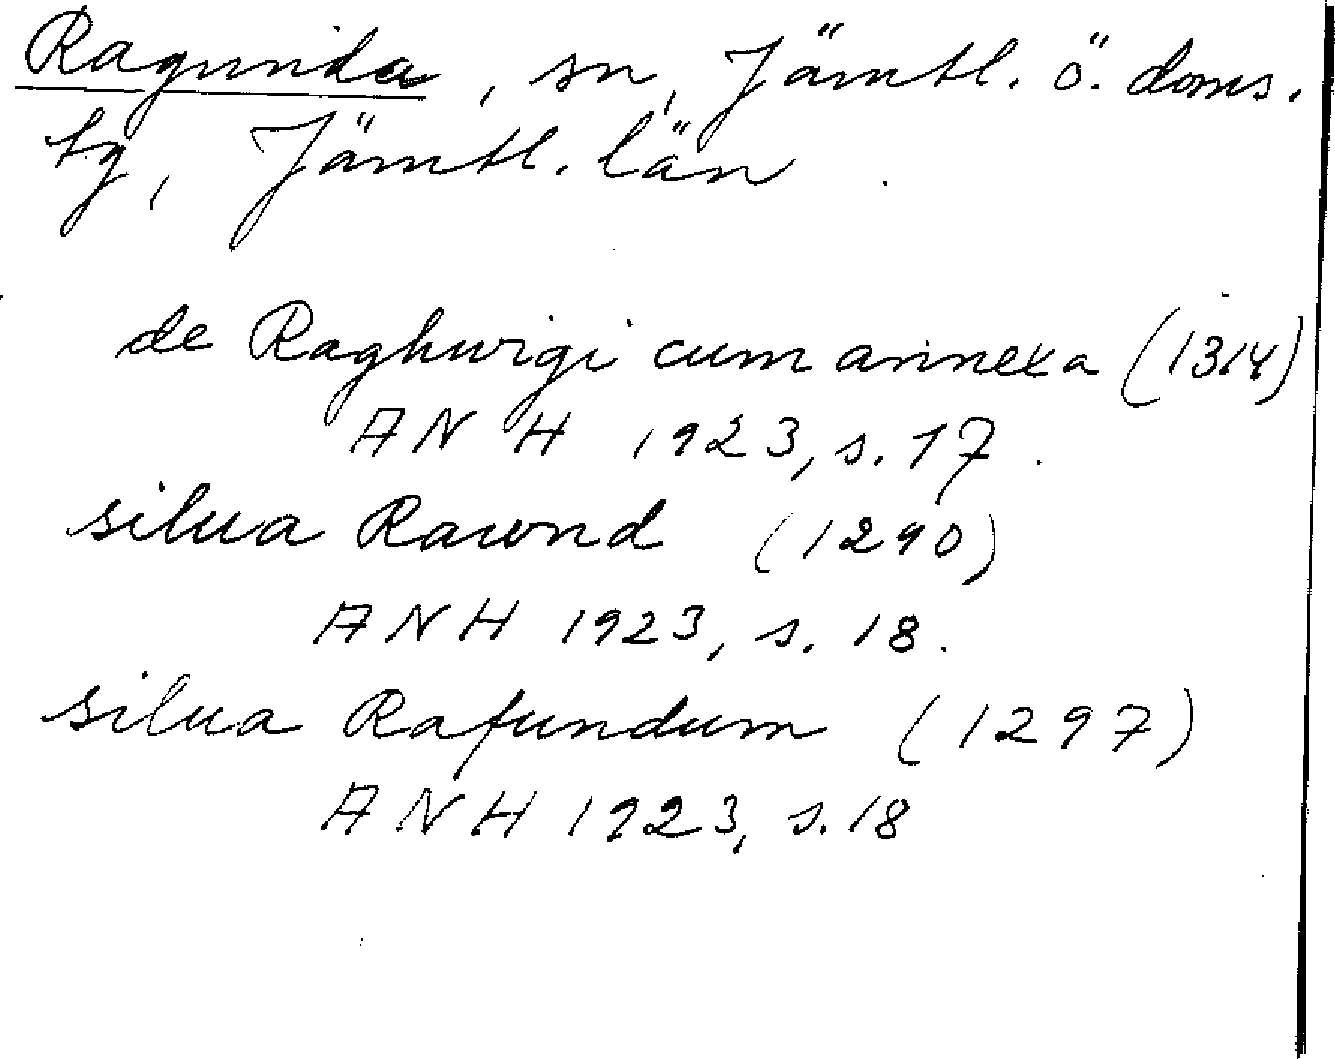 Ragunda, sn, Jämtl. ö. doms.
tg, Jämtl. län
de Raghurigi cum annexa (1314)
ANH 1923, s. 17.
silua Rawnd (1290)
ANH 1923, s. 18.
silua Rafundum (1297)
ANH 1923, s. 18